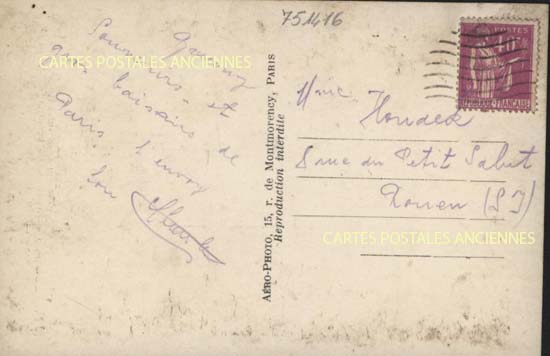 751416
souvenirs - et
gros baisers, de
Paris t'envoy
ton
AÉRO-PHOTO, 15, r. de Montmorency, PARIS
Reproduction interdite
POSTES
RÉPUBLIQUE FRANÇAISE
Mme Houdek
8 rue du Petit Salut
Rouen (S I)
CARTES POSTALES ANCIENNES
CARTES POSTALES ANCIENNES